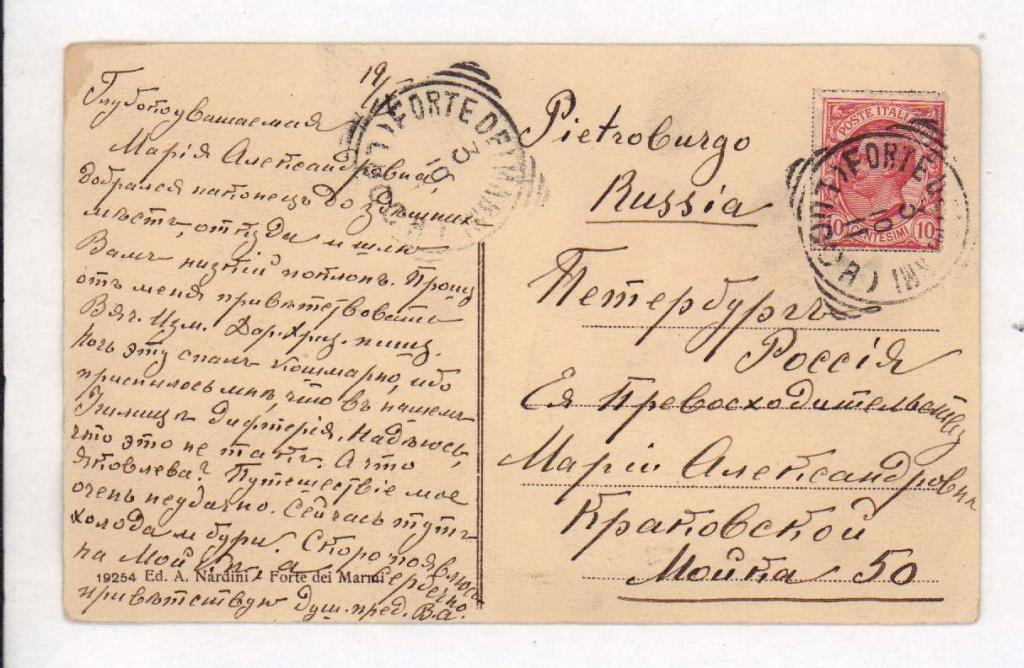 19/
Глубокоуважаемая
Марія Александровна,
добрался наконецъ до здѣшнихъ
мѣстъ, откуда и шлю
Вамъ низкій поклонъ. Прошу
отъ меня привѣтствовать
Вяч. Изм. Дар. Хриз.
Ночь эту спалъ кошмарно, ибо
приснилось мнѣ, что въ нашемъ
Училищѣ дифтерія. Надѣюсь,
что это не такъ. А что
Яковлева? Путешествіе мое
очень неудачно. Сейчасъ тутъ
холода и бури. Скоро появлюсь
на Мойкѣ, а сердечно
привѣтствую душ. пред. В.А.
19254 Ed. A. Nardini - Forte dei Marmi
FORTE DEI MARMI (LUCCA)
3 10
Pietroburgo
Russia
Петербургъ
Россія
Ея Превосходительству
Маріи Александровнѣ
Краковской
Мойка 50
POSTE ITALIANE
10 CENTESIMI 10
FORTE DEI MARMI (LUCCA)
3 10